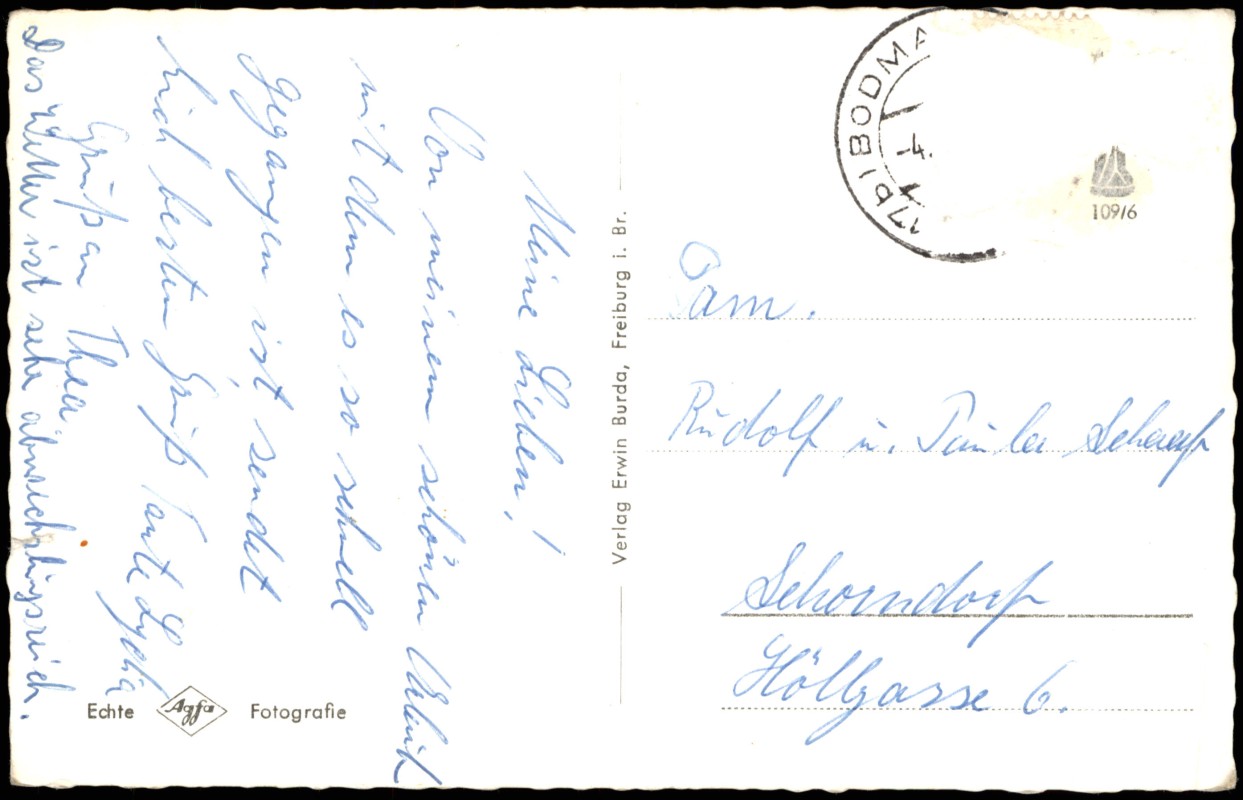 Meine Lieben!
Von meinem schönen Urlaub
mit dem es so schnell
gegangen ist sendet
Euch besten Gruß Tante Lydia
Gruß an Thea.
Das Wetter ist sehr abwechslungsreich.
Echte Agfa Fotografie
Verlag Erwin Burda, Freiburg i. Br.
17b BODMA
4.
109/6
Fam.
Rudolf u. Paula
Schorndorf
Höllgasse 6.